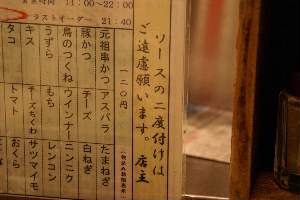 営業時間　11：00～22：00
ラストオーダー　21：40
ソースの二度付けは
ご遠慮願います。店主
一二〇円
元祖串かつ　アスパラ　たまねぎ
豚かつ　チーズ　白ねぎ
鳥のつくね　ウインナー　ニンニク
うずら　もち　レンコン
キス　チーズちくわ　サツマイモ
タコ　トマト　おくら